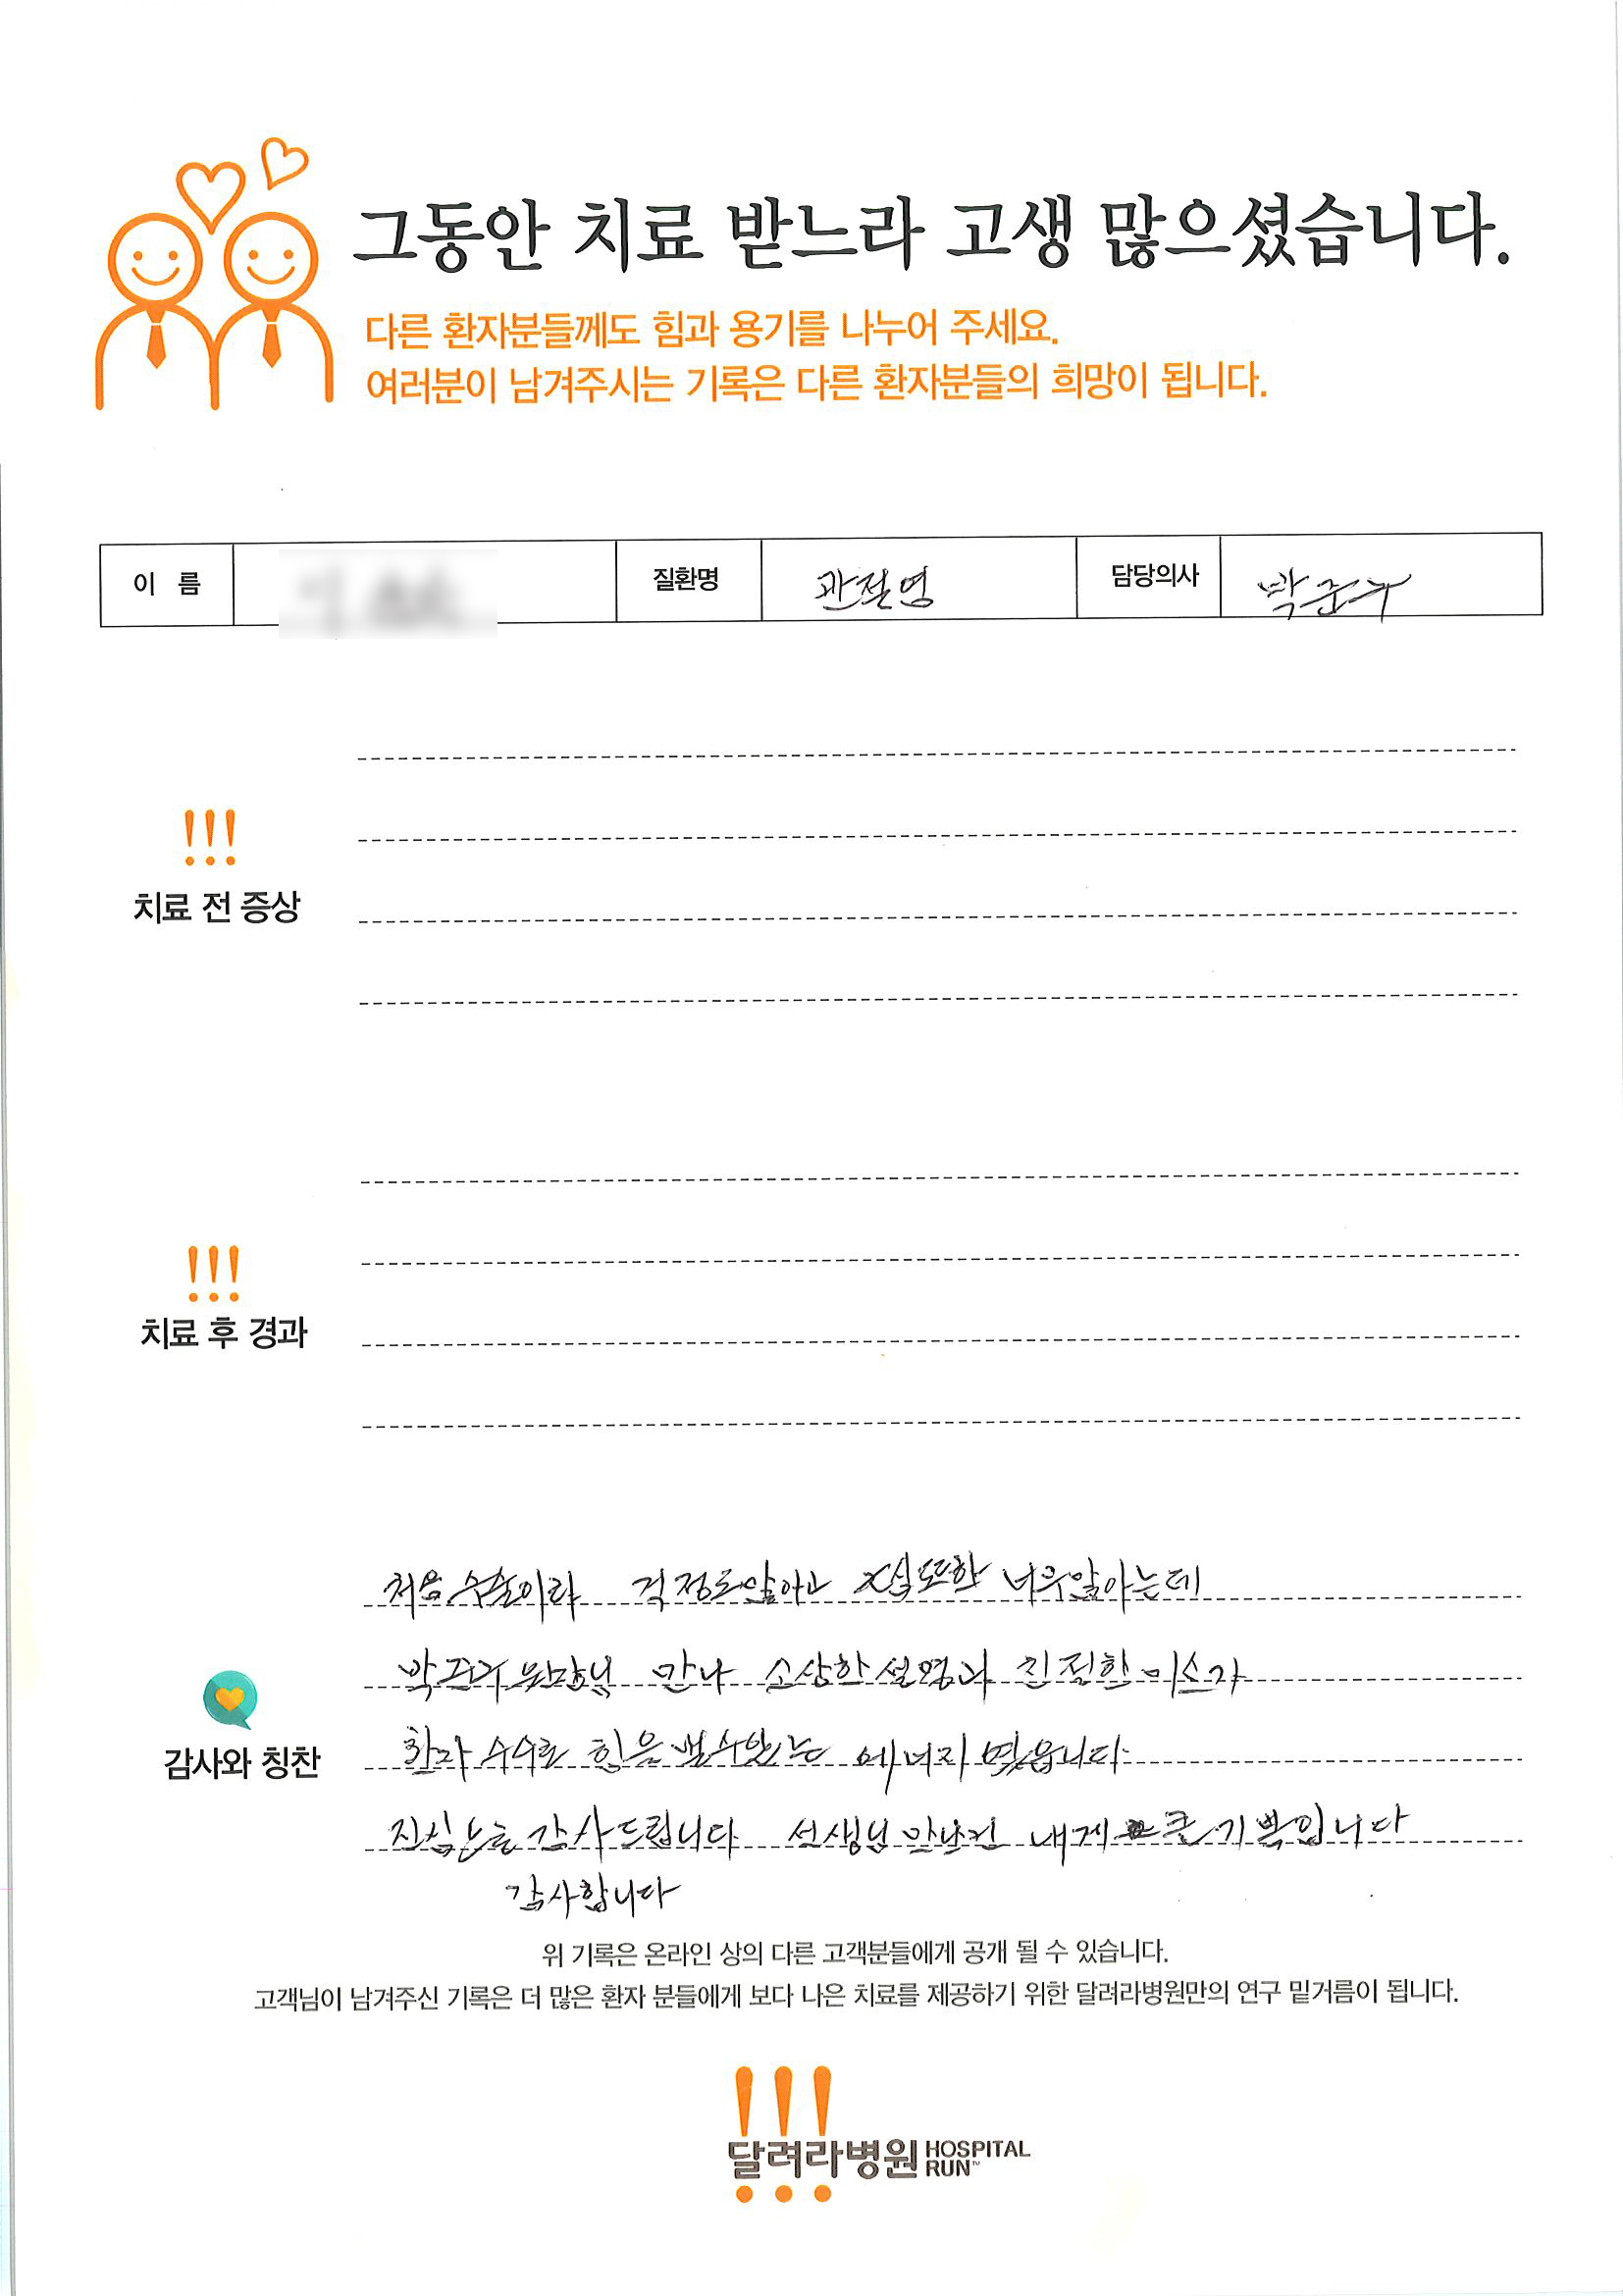 그동안 치료 받느라 고생 많으셨습니다.
다른 환자분들께도 힘과 용기를 나누어 주세요.
여러분이 남겨주시는 기록은 다른 환자분들의 희망이 됩니다.
이 름 질환명 관절염 담당의사 박준규
!!!
치료 전 증상
!!!
치료 후 경과
감사와 칭찬
처음 수술이라 걱정도많아고 또한 너무많아는데
박준규 원장님 만나 소상한 설명과 친절한 미소가
환자 힘을 낼수있는 에너지 였읍니다
진심으로 감사드립니다 선생님 만난건 내게 큰 기쁨입니다
감사합니다
위 기록은 온라인 상의 다른 고객분들에게 공개 될 수 있습니다.
고객님이 남겨주신 기록은 더 많은 환자 분들에게 보다 나은 치료를 제공하기 위한 달려라병원만의 연구 밑거름이 됩니다.
!!!
달려라병원 HOSPITAL RUN™